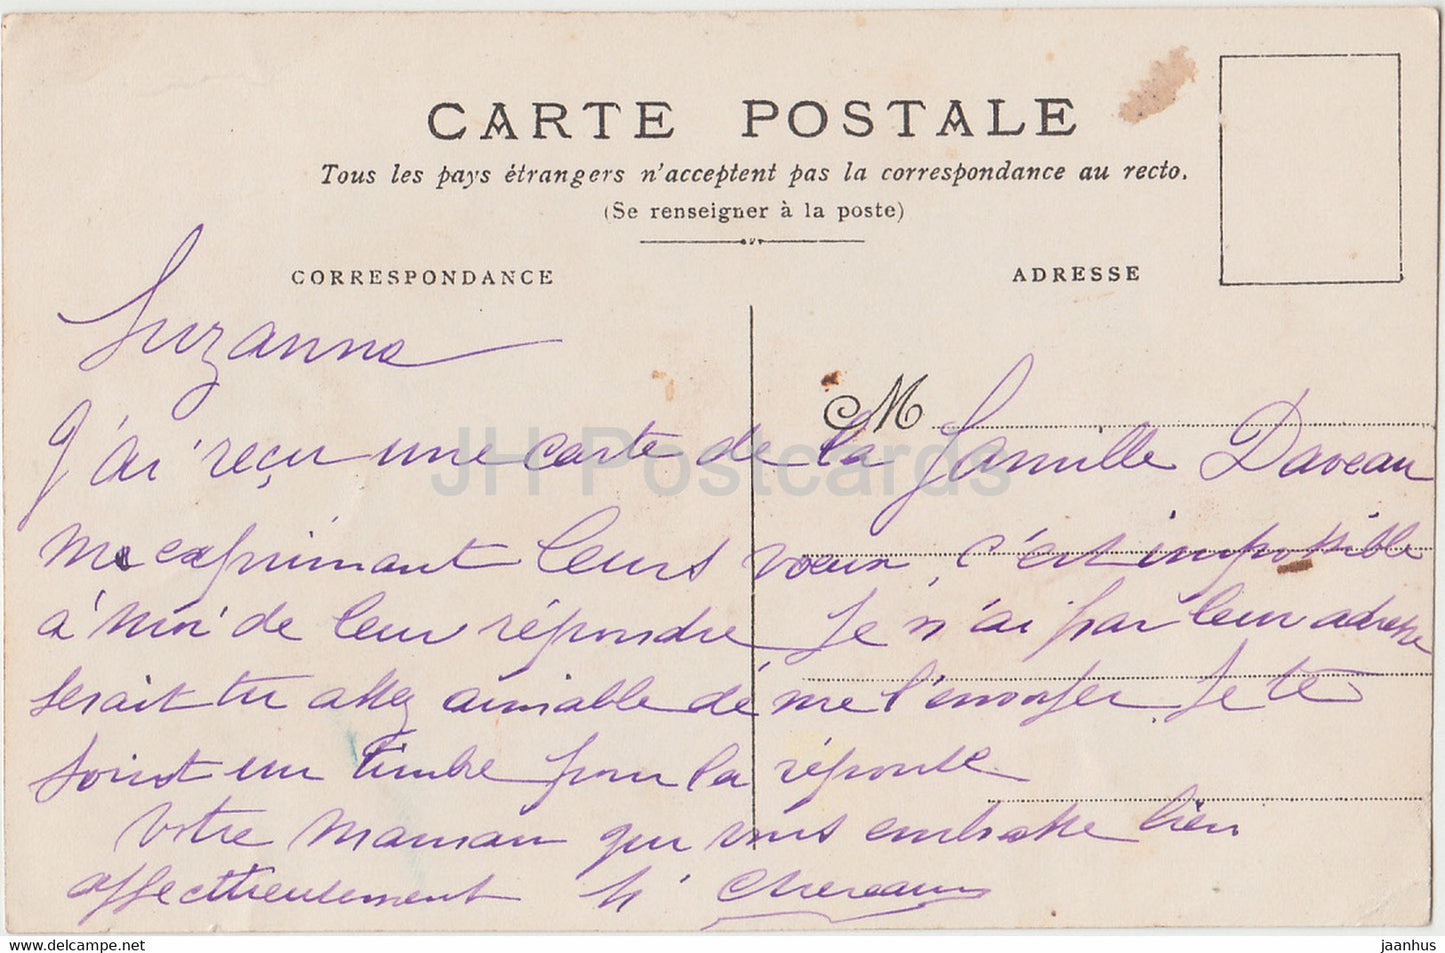 CARTE POSTALE
Tous les pays étrangers n'acceptent pas la correspondance au recto.
(Se renseigner à la poste)
CORRESPONDANCE
ADRESSE
M
Suzanne
J'ai reçu une carte de la famille Daveau
me exprimant leurs voeux, c'est impossible
à moi de leur répondre Je n'ai pas leur adresse
serait tu assez aimable de me l'envoyer Je te
joint un timbre pour la réponse
Votre maman qui vous embrasse bien
affectueusement
JH Postcards
www.hippostcard.com
jaanhus